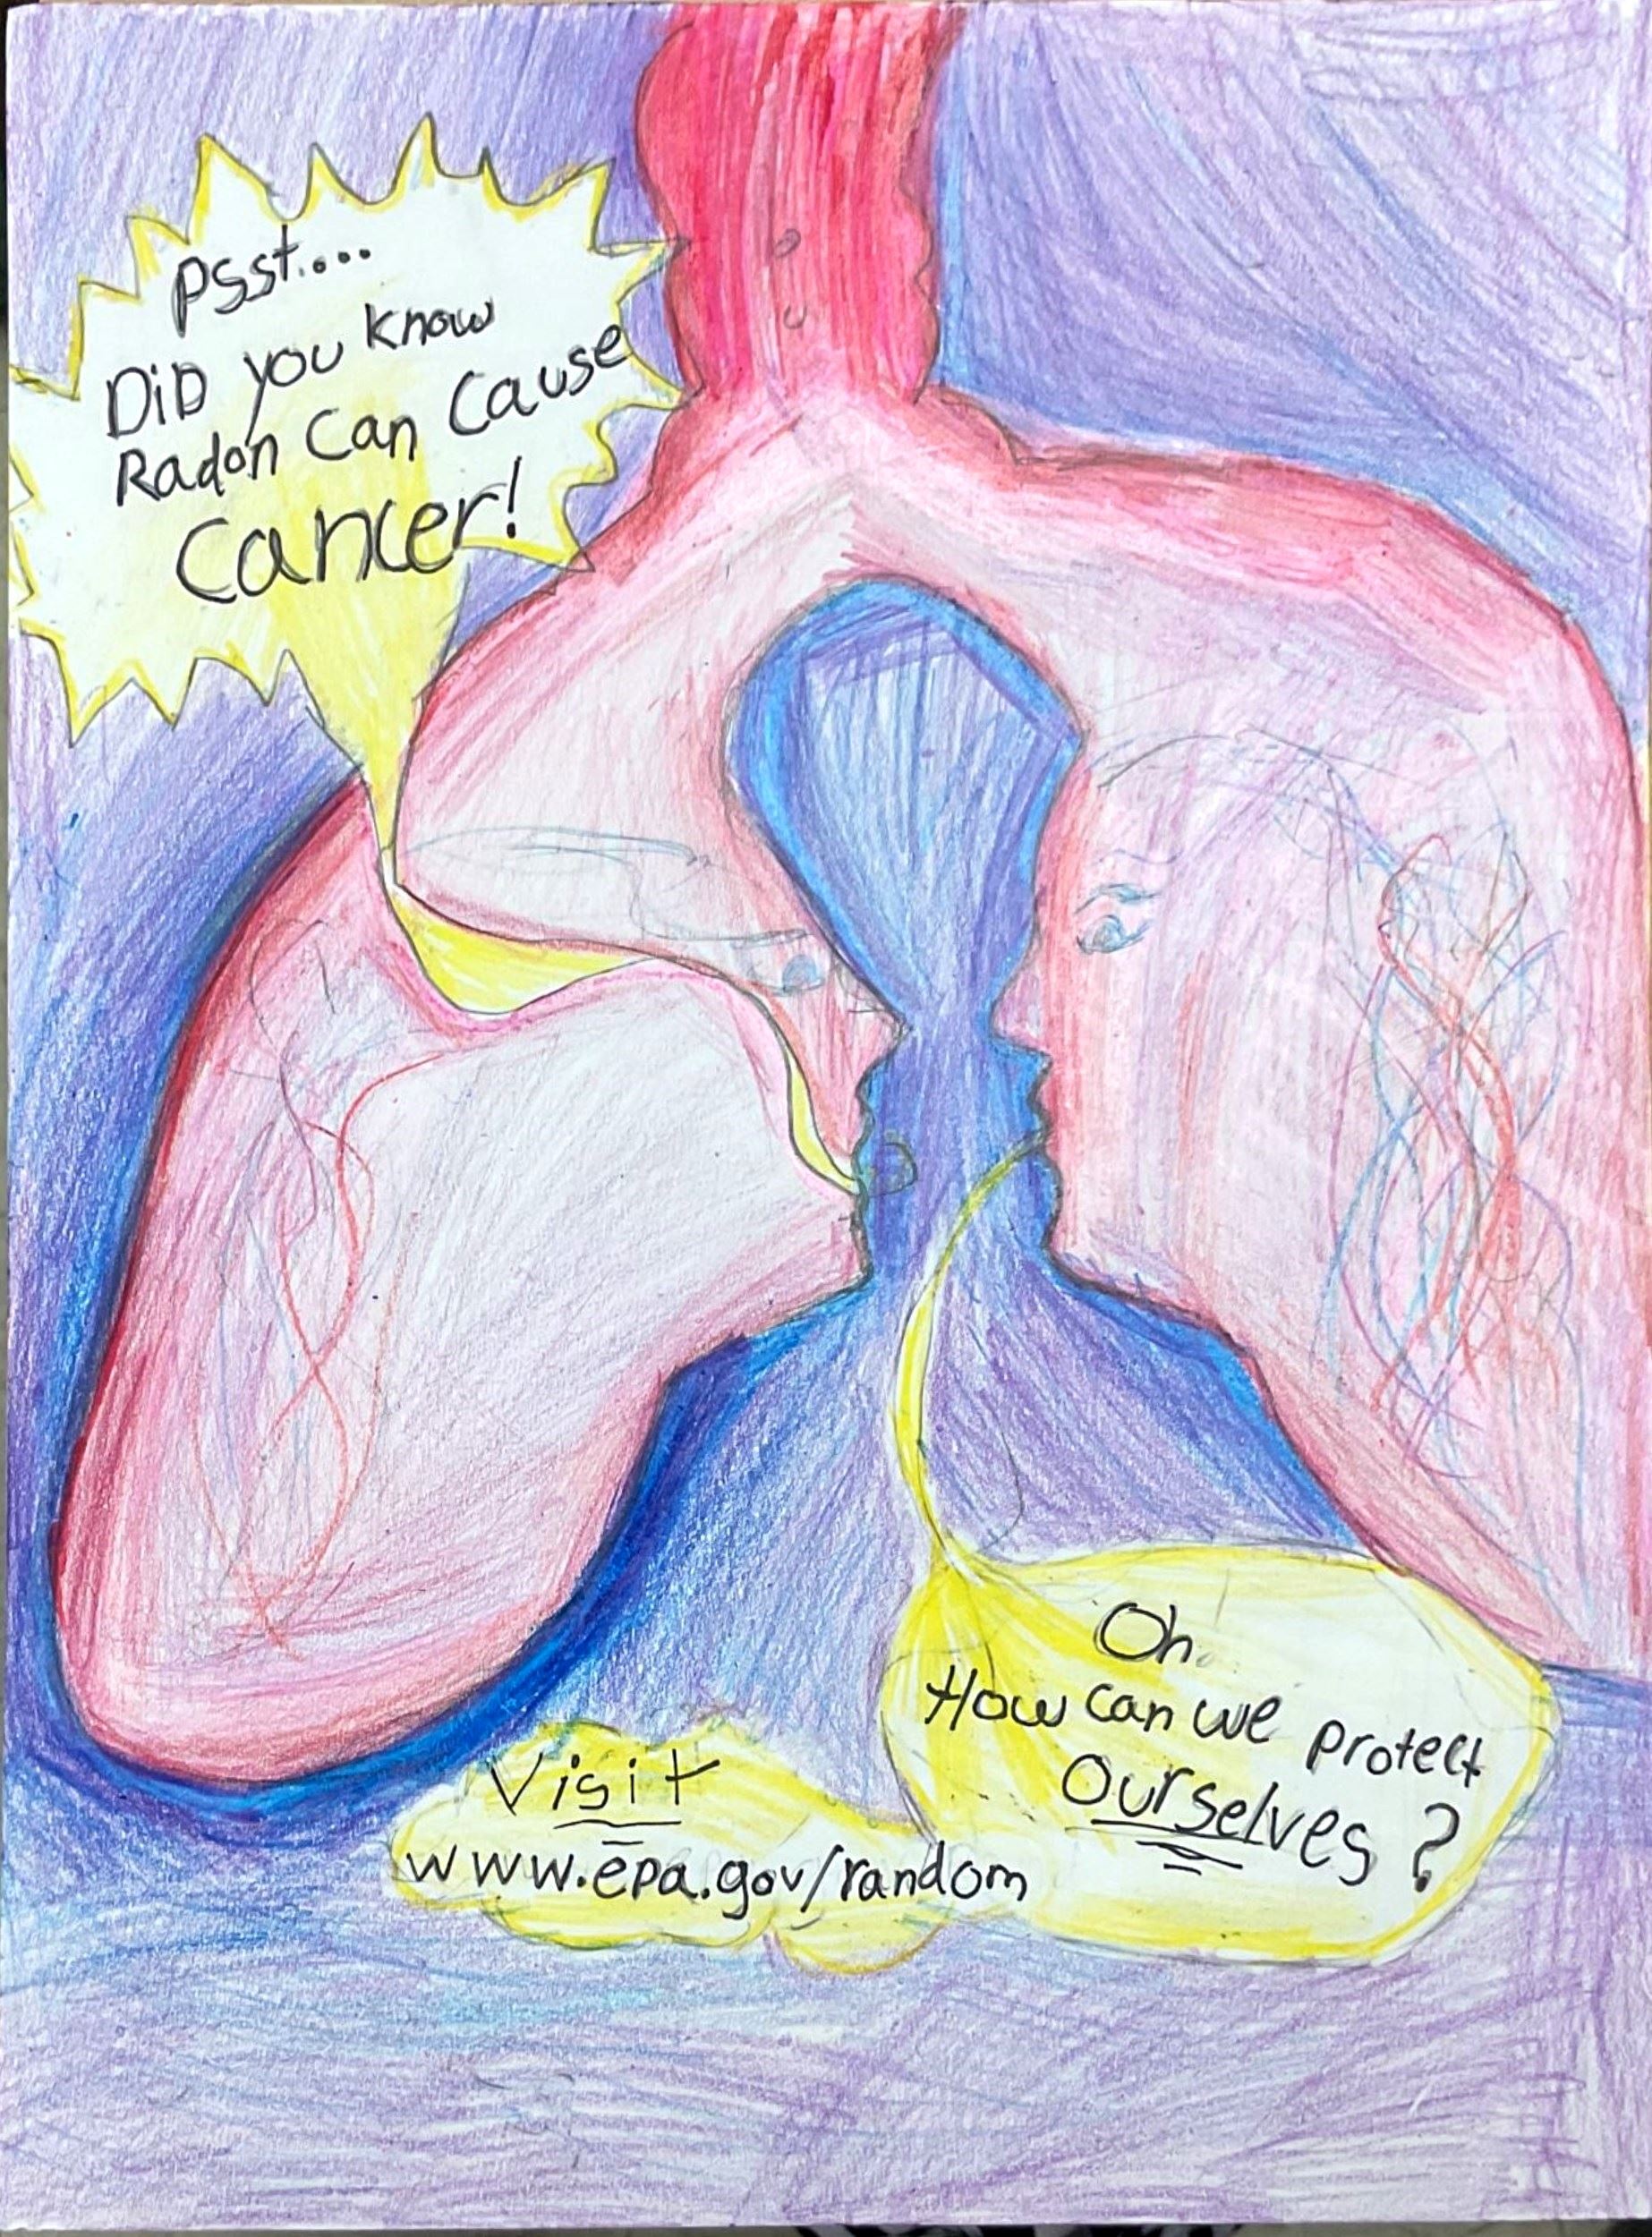 Psst....
DiD you know
Radon Can Cause
Cancer!
Oh.
How can we protect
Ourselves?
Visit
www.epa.gov/random